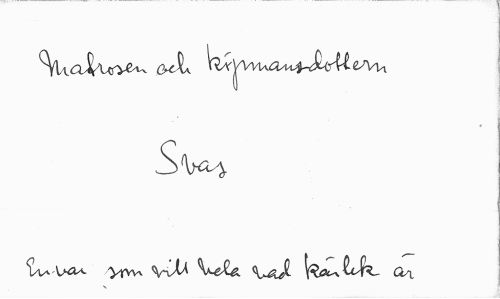 Matrosen och köpmansdottern
Svas
Envar som vill veta vad kärlek är